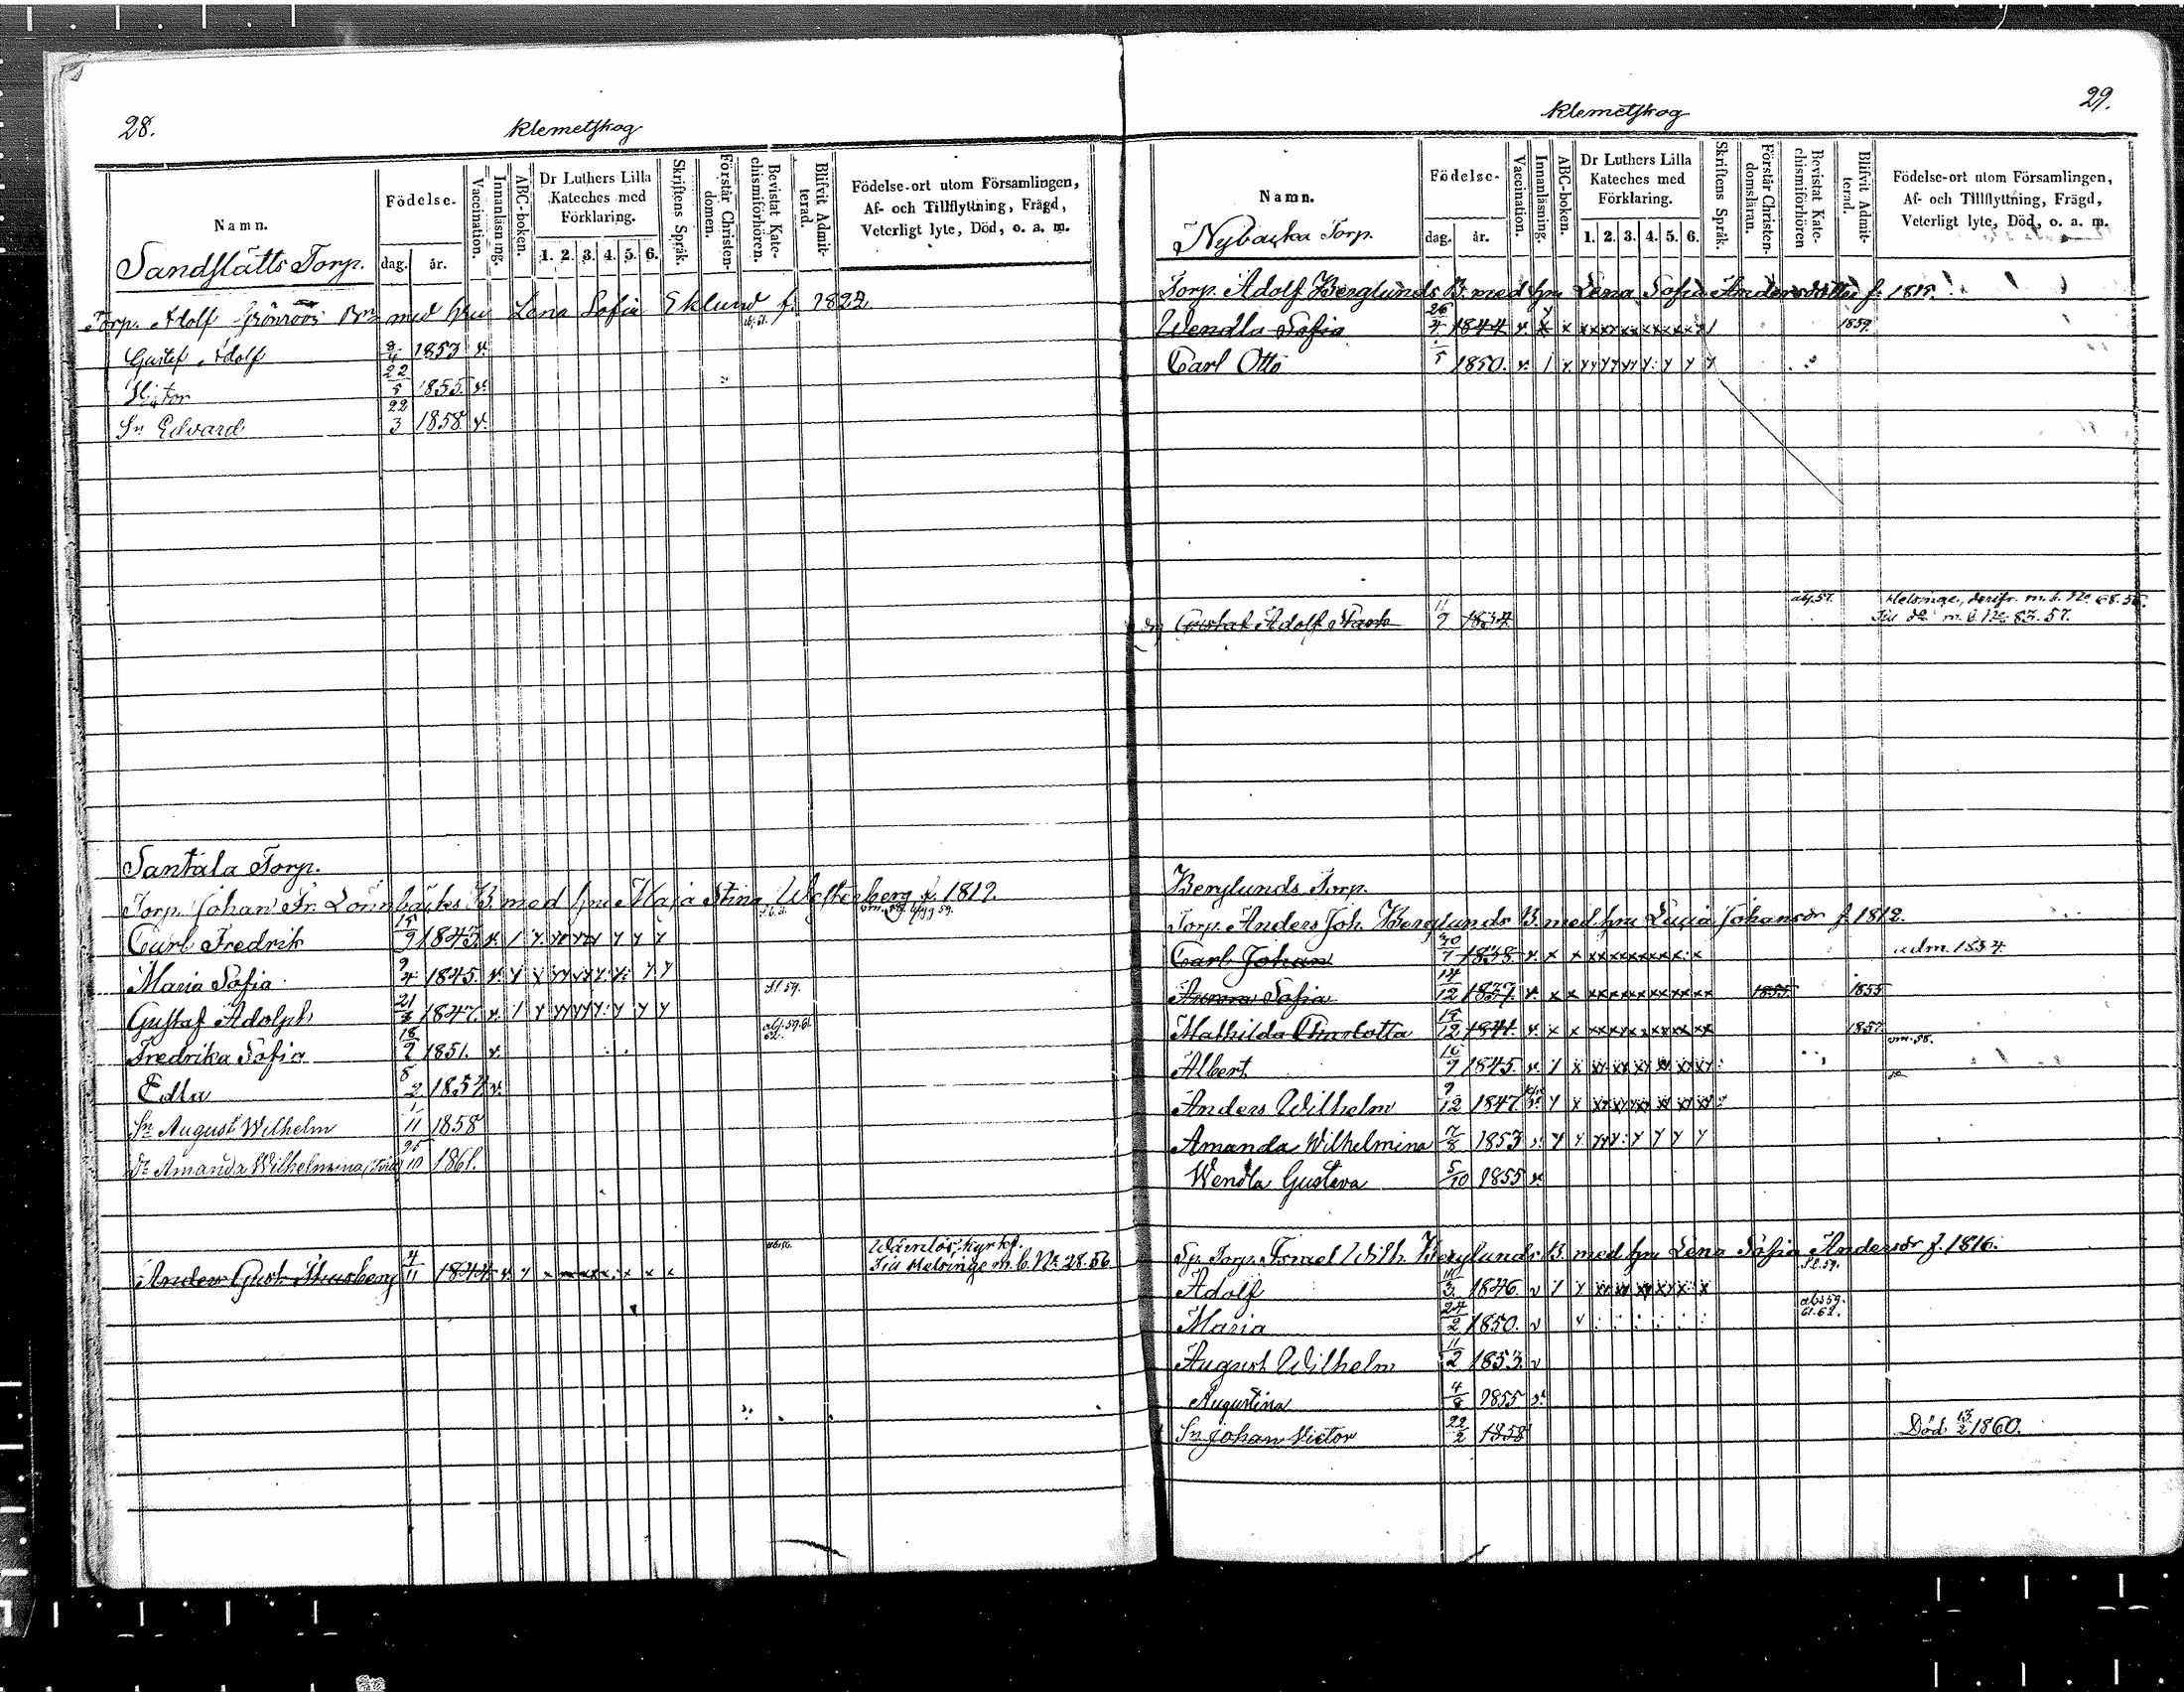 28.
Klemetskog
Namn.
Födelse.
dag. år.
Vaccination.
Innanläsning.
ABC-boken.
Dr Luthers Lilla Kateches med Förklaring.
1. 2. 3. 4. 5. 6.
Skriftens Språk.
Förstår Christendomen.
Bevistat Katechismiförhören.
Blifvit Admitterad.
Födelse-ort utom Församlingen,
Af- och Tillflyttning, Frägd,
Veterligt lyte, Död, o. a. m.
Sandslätts Torp.
Torp. Adolf Grönroos Brn med hru Lena Sofia Eklund f. 1822
Gustaf Adolf 1853 v.
22/5 1855 v.
Sn Edvard 22/3 1858 v.
Santala Torp.
Torp. Johan Fr. Lönnbäcks B. med hru Maja Stina Westerberg f. 1819.
Carl Fredrik 15/9 1843. v. 1 y.
Maria Sofia 9/4 1845. v. y x
Sl 59.
Gustaf Adolph 21/3 1847. v. 1 y
abs. 59. 61. 62.
Fredrika Sofia 18/9 1851. v.
Edla 8/2 1854 v.
Sn August Wilhelm 1/11 1858
Dr Amanda Wilhelmina 25/10 1861.
Anders Gust. Thusberg 4/11 1844 v y x
Till Helsinge m. b. No 28. 56
29.
Klemetskog
Namn.
Födelse-
dag. år.
Vaccination.
Innanläsning.
ABC-boken.
Dr Luthers Lilla Kateches med Förklaring.
1. 2. 3. 4. 5. 6.
Skriftens Språk.
Förstår Christendomsläran.
Bevistat Katechismiförhören
Blifvit Admitterad.
Födelse-ort utom Församlingen,
Af- och Tillflyttning, Frägd,
Veterligt lyte, Död, o. a. m.
Nybacka Torp.
Torp. Adolf Berglunds B. med hru Lena Sofia Andersdotter f. 1815.
Wendla Sofia 26/4 1844 v. x x 1859.
Carl Otto 1850. v. 1 y.
Gustaf Adolf Stark 11/9 1834
abs. 57.
Helsinge, derifr. m. b. No 68. 56.
Till do m. b. No 83. 57.
Berglunds Torp.
Torp. Anders Joh. Berglunds B. med hru Lucia Johansdr f. 1812.
Carl Johan 30/7 1838. v. x x adm. 1854.
Aurora Sofia 14/12 1839. v. x x 1855 1855
Mathilda Charlotta 15/12 1841. v. x x 1857.
Albert 16/9 1845. v. 1 x
Anders Wilhelm 9/12 1847. y x
Amanda Wilhelmina 7/8 1853 v. y y
Wendla Gustava 5/10 1855 v.
Torp. Ismel Wilh. Berglunds B. med hru Lena Sofia Andersdr f. 1816.
Sl. 59.
Adolf 1846. v 1 y
Maria 24/2 1850. v
abs 59. 61. 62.
August Wilhelm 11/2 1853. v
Augustina 4/8 1855 v.
Sn Johan Victor 22/2 1858
Död 13/2 1860.